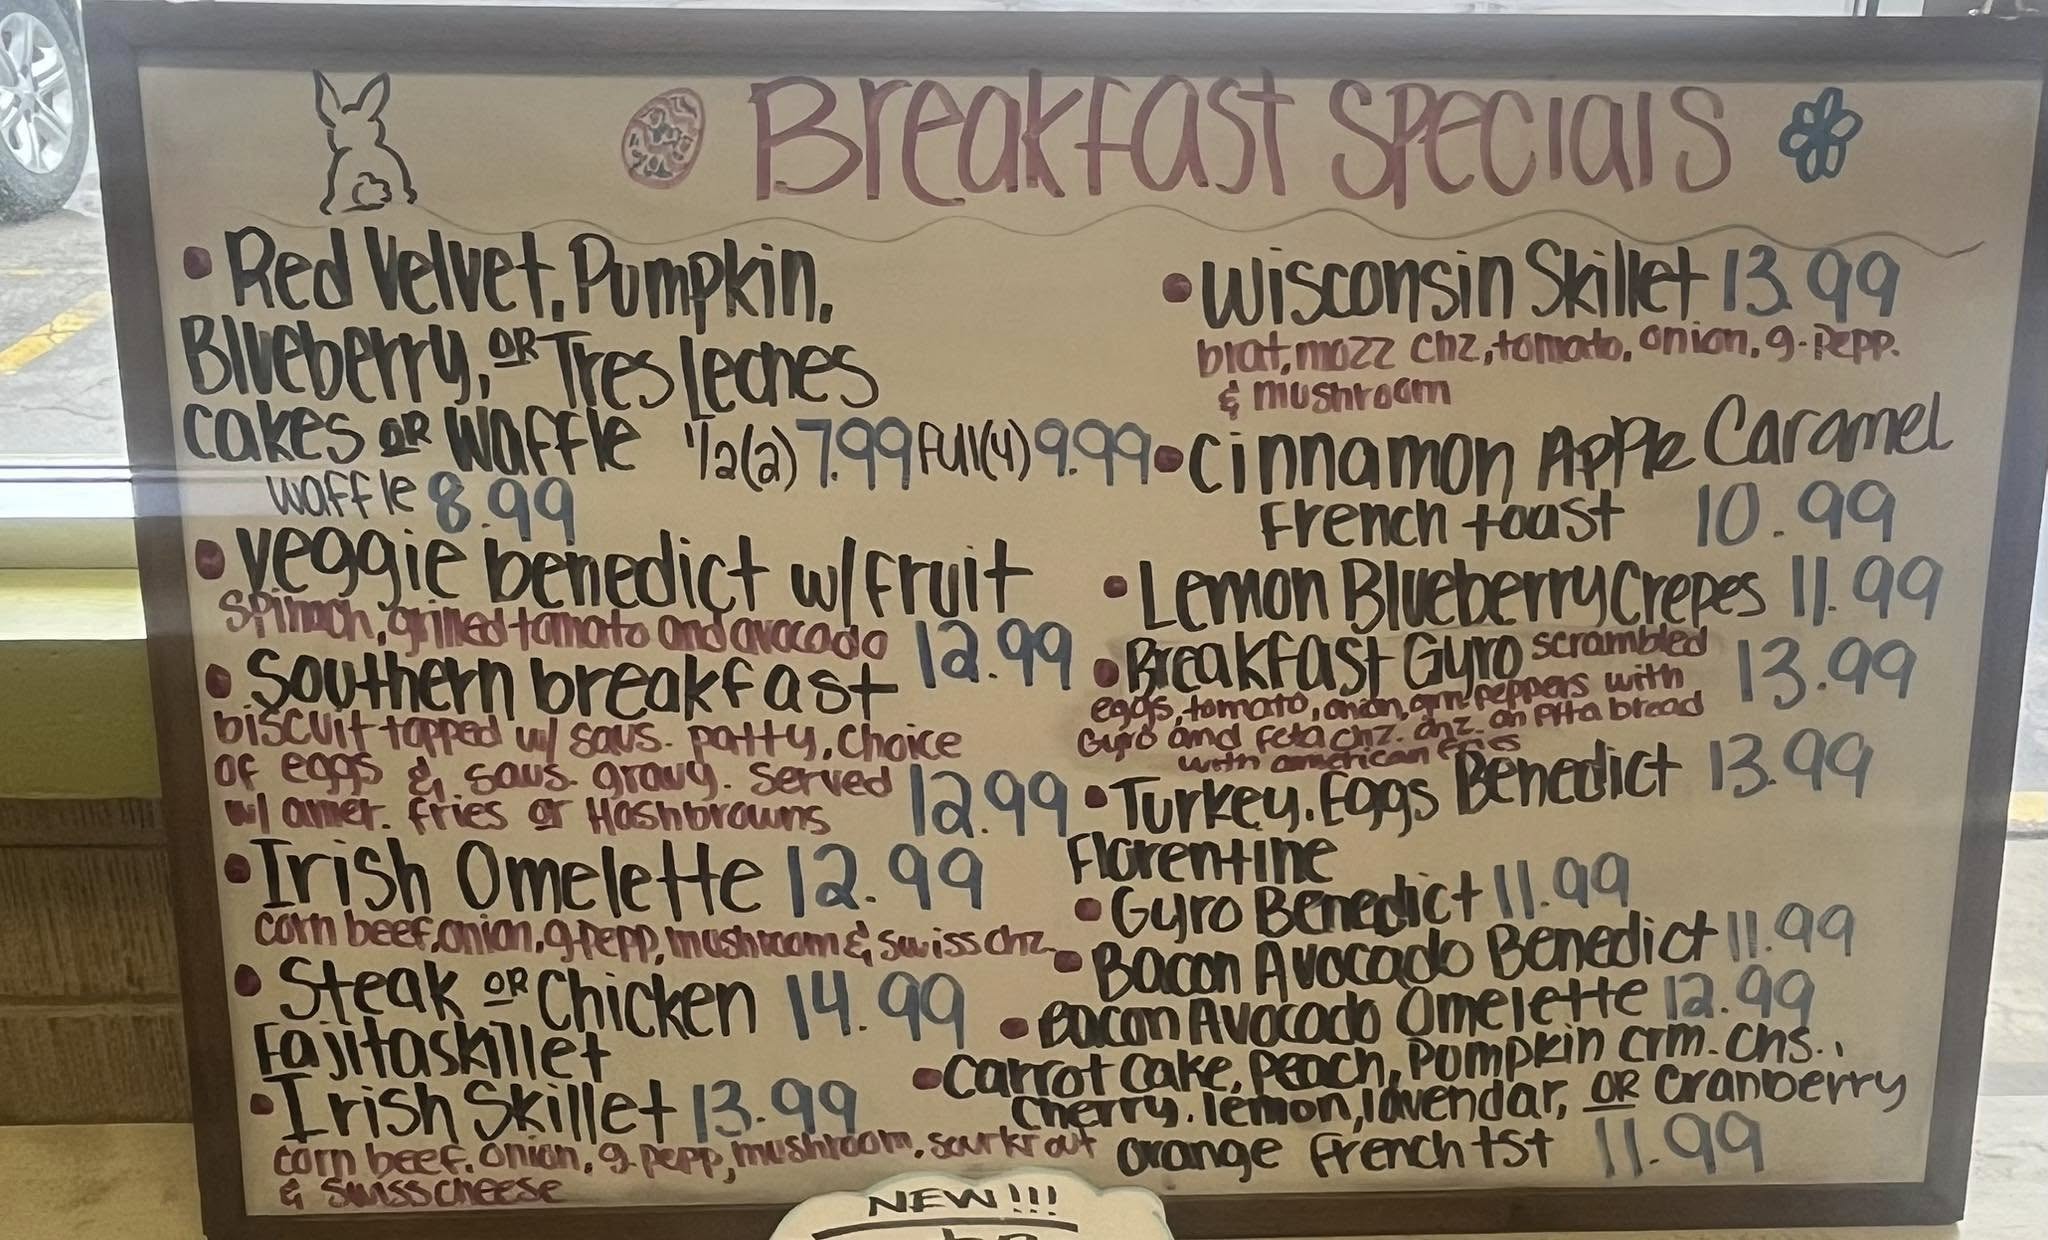 Breakfast Specials
• Red Velvet, Pumpkin,
Blueberry, OR Tres Leches
Cakes OR Waffle 1/2(2) 7.99 Full(4) 9.99
Waffle 8.99
• Veggie benedict w/ Fruit
Spinach, grilled tomato and avocado 12.99
• Southern breakfast
biscuit topped w/ saus. patty, choice
of eggs & saus. gravy. Served
w/ amer. fries or Hashbrowns 12.99
• Irish Omelette 12.99
corn beef, onion, g. pepp, mushroom & swiss chz.
• Steak OR Chicken 14.99
Fajita skillet
• Irish Skillet 13.99
corn beef, onion, g. pepp, mushroom, sourkrout
& swiss cheese
• Wisconsin Skillet 13.99
brat, mozz chz, tomato, onion, g. pepp.
& mushroom
• Cinnamon Apple Caramel
French toast 10.99
• Lemon Blueberry Crepes 11.99
• Breakfast Gyro scrambled 13.99
eggs, tomato, onion, grn. peppers with
Gyro and Feta chz. chz. on Pita bread
with american fries
• Turkey, Eggs Benedict 13.99
Florentine
• Gyro Benedict 11.99
• Bacon Avocado Benedict 11.99
• Bacon Avocado Omelette 12.99
• Carrot Cake, Peach, Pumpkin crm. chs.,
Cherry, lemon, lavendar, OR Cranberry
orange french tst 11.99
NEW!!!